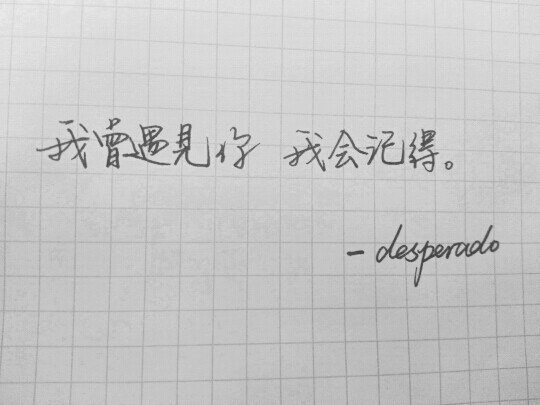 我曾遇見你 我会记得。
- desperado